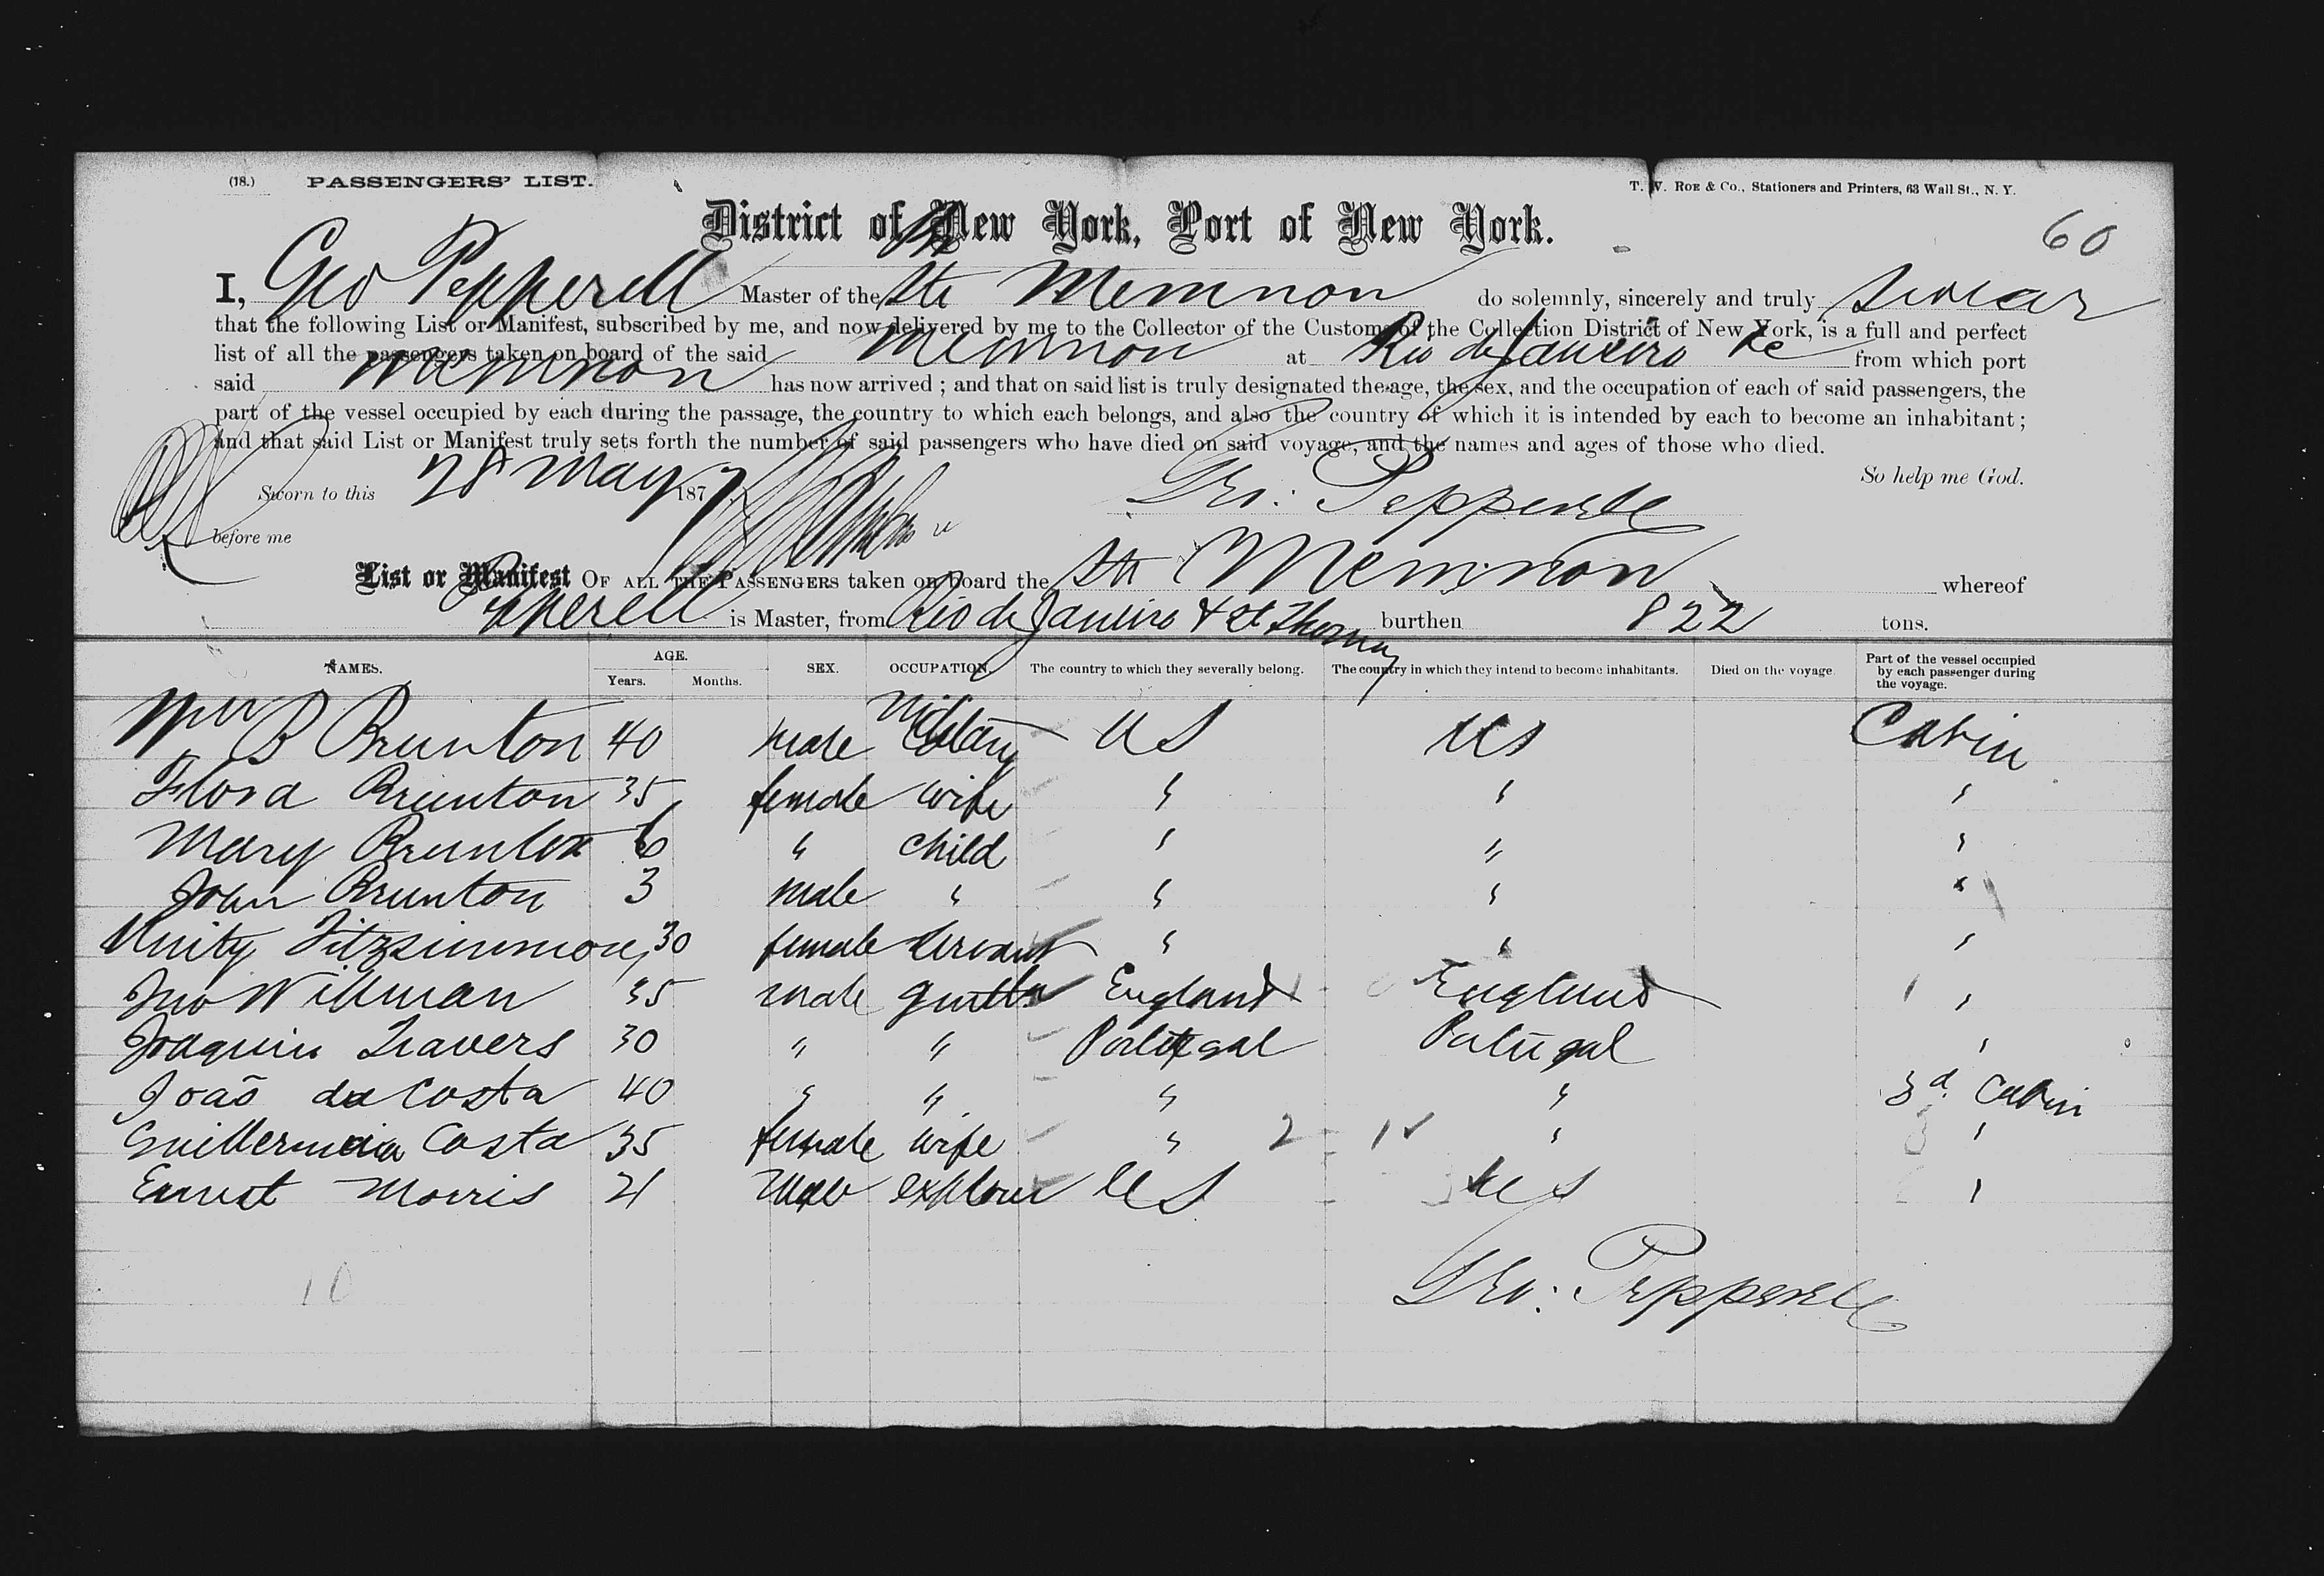 (18.) PASSENGERS' LIST.
T. W. ROE & Co., Stationers and Printers, 63 Wall St., N. Y.
District of New York, Port of New York.
60
I, Geo Pepperell Master of the Str Memnon do solemnly, sincerely and truly swear
that the following List or Manifest, subscribed by me, and now delivered by me to the Collector of the Customs of the Collection District of New York, is a full and perfect
list of all the passengers taken on board of the said Memnon at Rio de Janeiro &c from which port
said Memnon has now arrived ; and that on said list is truly designated the age, the sex, and the occupation of each of said passengers, the
part of the vessel occupied by each during the passage, the country to which each belongs, and also the country of which it is intended by each to become an inhabitant ;
and that said List or Manifest truly sets forth the number of said passengers who have died on said voyage, and the names and ages of those who died.
So help me God.
Sworn to this 28 May 1877
Geo: Pepperell
before me
List or Manifest OF ALL THE PASSENGERS taken on board the Str Memnon whereof
Pepperell is Master, from Rio de Janeiro & St Thomas burthen 822 tons.
NAMES. AGE. Years. Months. SEX. OCCUPATION. The country to which they severally belong. The country in which they intend to become inhabitants. Died on the voyage. Part of the vessel occupied by each passenger during the voyage.
Wm B Brunton 40 male Military US US Cabin
Flora Brunton 35 female wife " " "
Mary Brunton 6 " child " " "
John Brunton 3 male " " " "
Unity Fitzsimmons 30 female servant " " "
Jno Willman 35 male gentln England England "
Joaquin Travers 30 " " Portugal Portugal "
João da Costa 40 " " " " 3d Cabin
Guillermina Costa 35 female wife " 2 - 1 " "
Ernest Morris 21 male explorer US US "
10
Geo: Pepperell